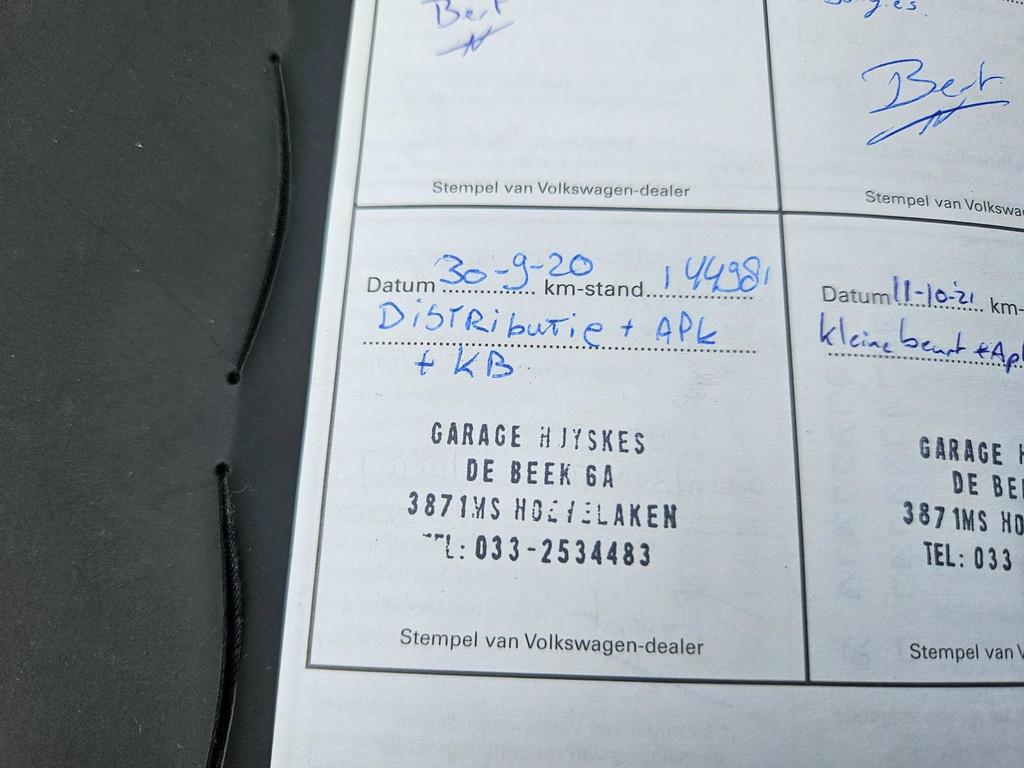 Bert
Bert
Stempel van Volkswagen-dealer
Stempel van Volkswa
Datum 30-9-20 km-stand 144981
Distributie + APk
+ KB
GARAGE HUYSKES
DE BEEK 6A
3871MS HOEVELAKEN
TEL: 033-2534483
Stempel van Volkswagen-dealer
Datum 11-10-'21 km-
kleine beurt + Ap
GARAGE H
DE BE
3871MS HO
TEL: 033
Stempel van V